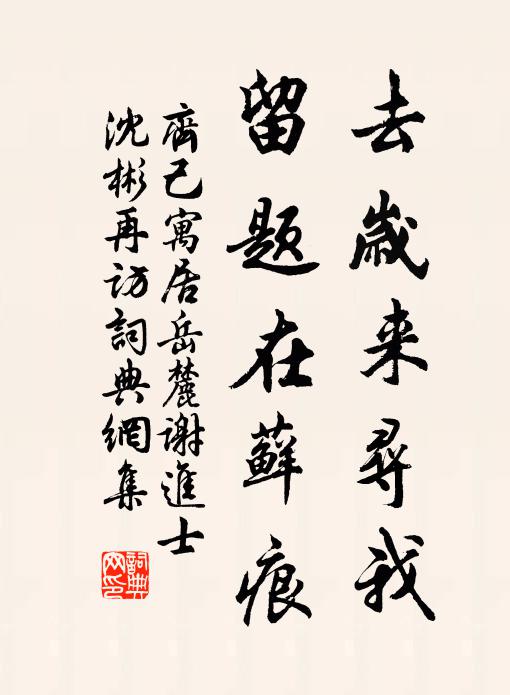 去歲来尋我
留题在蘚痕
齊己寓居岳麓谢進士
沈彬再访詞典網集
詞典网印